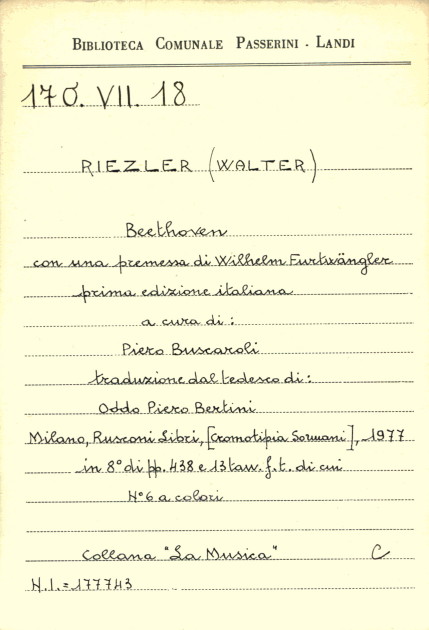 BIBLIOTECA COMUNALE PASSERINI - LANDI
170. VII. 18
RIEZLER (WALTER)
Beethoven
con una premessa di Wilhelm Furtwängler
prima edizione italiana
a cura di :
Piero Buscaroli
traduzione dal tedesco di :
Oddo Piero Bertini
Milano, Rusconi Libri, [Cromotipia Sormani], 1977
in 8° di pp. 438 e 13 tav. f. t. di cui
N° 6 a colori
Collana "La Musica" C
N.I. = 177743